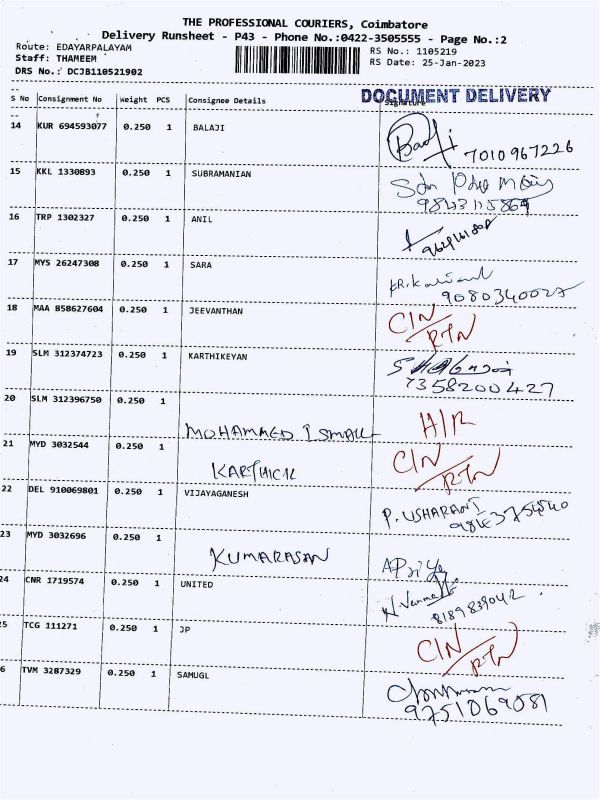 THE PROFESSIONAL COURIERS, Coimbatore
Delivery Runsheet - P43 - Phone No.:0422-3505555 - Page No.:2
Route: EDAYARPALAYAM RS No.: 1105219
Staff: THAMEEM RS Date: 25-Jan-2023
DRS No.: DCJB110521902
DOCUMENT DELIVERY
S No Consignment No Weight PCS Consignee Details Signature
14 KUR 694593077 0.250 1 BALAJI
7010967226
15 KKL 1330893 0.250 1 SUBRAMANIAN
16 TRP 1302327 0.250 1 ANIL
17 MYS 26247308 0.250 1 SARA
9080340027
18 MAA 858627604 0.250 1 JEEVANTHAN
CIN/RTN
19 SLM 312374723 0.250 1 KARTHIKEYAN
7358200427
20 SLM 312396750 0.250 1
MOHAMMED ISMAIL H/R
21 MYD 3032544 0.250 1 CIN/RTN
KARTHICK
22 DEL 910069801 0.250 1 VIJAYAGANESH
P. USHARANI
23 MYD 3032696 0.250 1
KUMARASAN
24 CNR 1719574 0.250 1 UNITED
8189839042
25 TCG 111271 0.250 1 JP
CIN/RTN
6 TVM 3287329 0.250 1 SAMUGL
9751069081